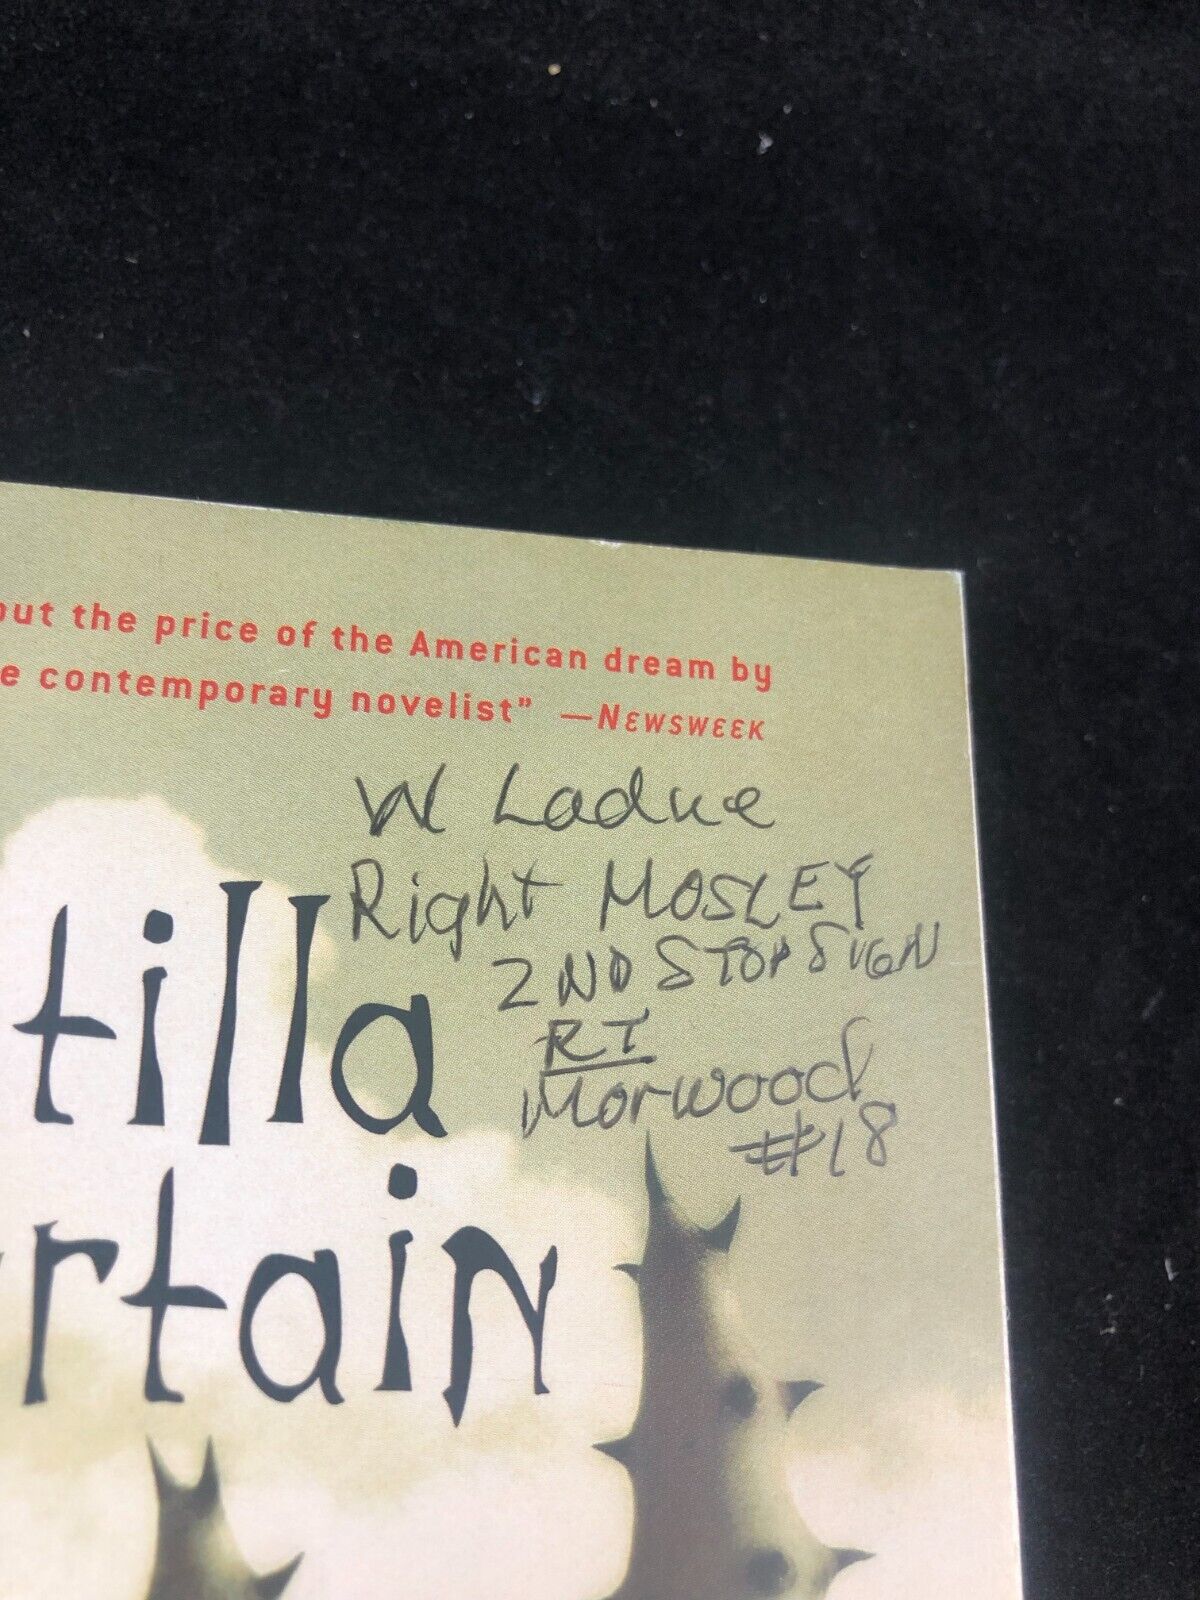 out the price of the American dream by
e contemporary novelist" —NEWSWEEK
W Ladue
Right MOSLEY
2ND STOP SIGN
RT
Morwood
#18
tilla
rtain